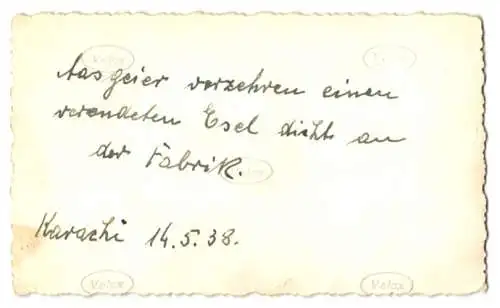 Velox
Aasgeier verzehren einen
verendeten Esel dicht an
der Fabrik.
Karachi 14.5.38.
Velox Velox